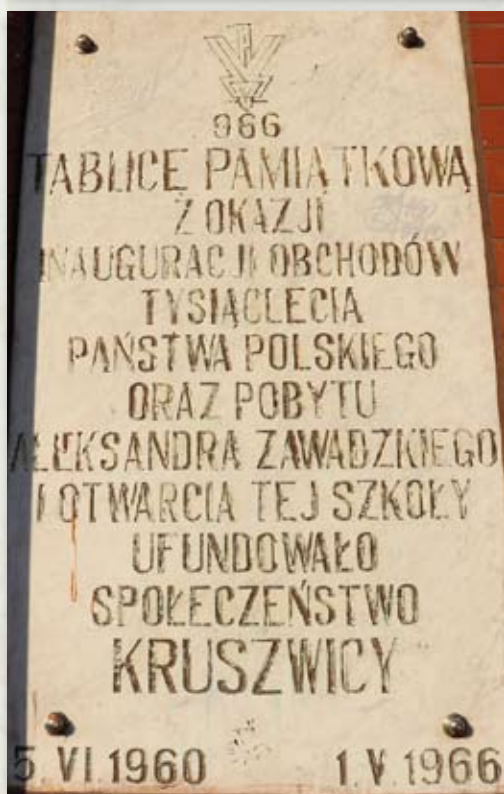 966
TABLICĘ PAMIĄTKOWĄ
Z OKAZJI
INAUGURACJI OBCHODÓW
TYSIĄCLECIA
PAŃSTWA POLSKIEGO
ORAZ POBYTU
ALEKSANDRA ZAWADZKIEGO
I OTWARCIA TEJ SZKOŁY
UFUNDOWAŁO
SPOŁECZEŃSTWO
KRUSZWICY
5.VI.1960 1.V.1966